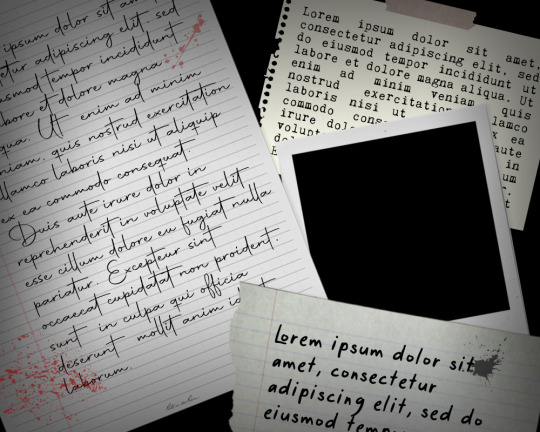 ipsum dolor sit amet,
adipiscing elit, sed
tempor incididunt
labore et dolore magna
Ut enim ad minim
veniam, quis nostrud exercitation
ullamco laboris nisi ut aliquip
ex ea commodo consequat.
Duis aute irure dolor in
reprehenderit in voluptate velit
esse cillum dolore eu fugiat nulla
pariatur. Excepteur sint
occaecat cupidatat non proident.
sunt in culpa qui officia
deserunt mollit anim
laborum.
Lorem ipsum dolor sit amet.
consectetur adipiscing elit, sed
do eiusmod tempor incididunt ut
labore et dolore magna aliqua. Ut
enim ad minim veniam, quis
nostrud exercitation
laboris nisi ut ex ea
commodo
irure
in
Lorem ipsum dolor sit
amet, consectetur
adipiscing elit, sed do
eiusmod